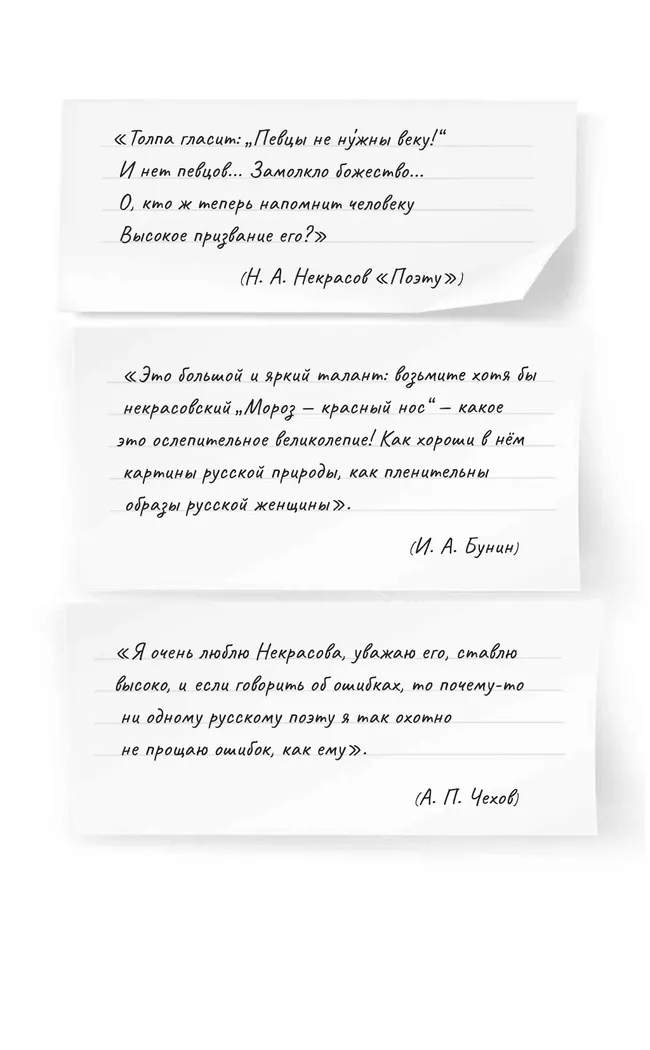 «Толпа гласит: „Певцы не ну́жны веку!“
И нет певцов... Замолкло божество...
О, кто ж теперь напомнит человеку
Высокое призвание его?»
(Н. А. Некрасов «Поэту»)
«Это большой и яркий талант: возьмите хотя бы
некрасовский „Мороз – красный нос“ – какое
это ослепительное великолепие! Как хороши в нём
картины русской природы, как пленительны
образы русской женщины».
(И. А. Бунин)
«Я очень люблю Некрасова, уважаю его, ставлю
высоко, и если говорить об ошибках, то почему-то
ни одному русскому поэту я так охотно
не прощаю ошибок, как ему».
(А. П. Чехов)